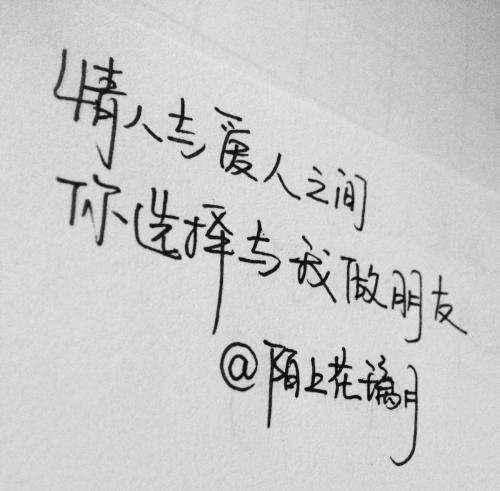 情人与爱人之间
你选择与我做朋友
@陌上花谪月